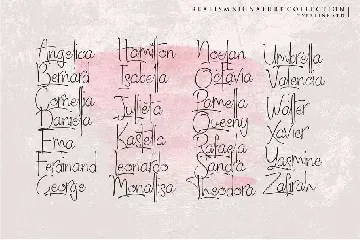 REALISM SIGNATURE COLLECTION
Angelica
Bernard
Cornelia
Daniella
Ema
Ferdinand
George
Hamilton
Isabella
Julieta
Kastella
Leonardo
Monalisa
Noelan
Octavia
Pamella
Queeny
Rafaela
Sandra
Theodora
Umbrella
Valencia
Walter
Xavier
Yasmine
Zafirah